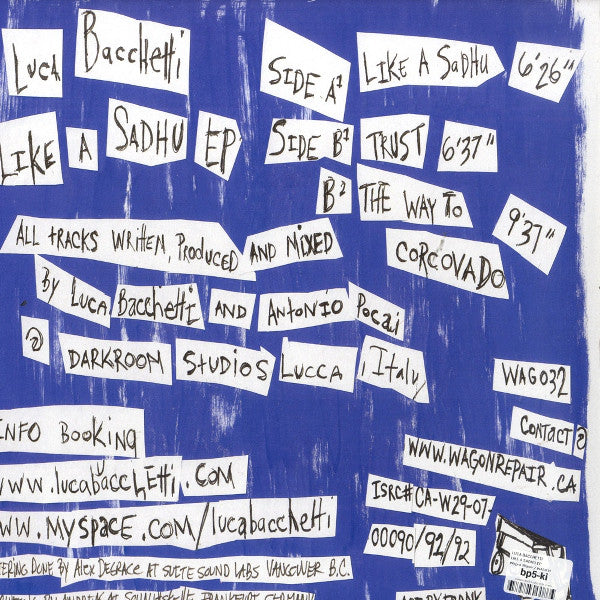 Luca Bacchetti
LIKE A SADHU EP
SIDE A1 LIKE A SADHU 6'26"
SIDE B1 TRUST 6'37"
B2 THE WAY TO CORCOVADO 9'37"
ALL tRACKS WRITTEN, PRODUCED AND MIXED
By Luca Bacchetti AND ANTONIO Pocai
@ DARKROOM STUDIOS LUCCA, Italy
WAG032
CONTACT @
WWW.WAGONREPAIR.CA
INFO BOOKING
WWW.lucabacchetti.COM
WW.MYSPACE.COM/lucabacchetti
ISRC# CA-W29-07-
00090/92/92
TERING DONE BY ALEX DEGRACE AT SUITE SOUND LABS VANCOUVER B.C.
LUCA BACCHETTI
LIKE A SADHU EP
bp5-ki